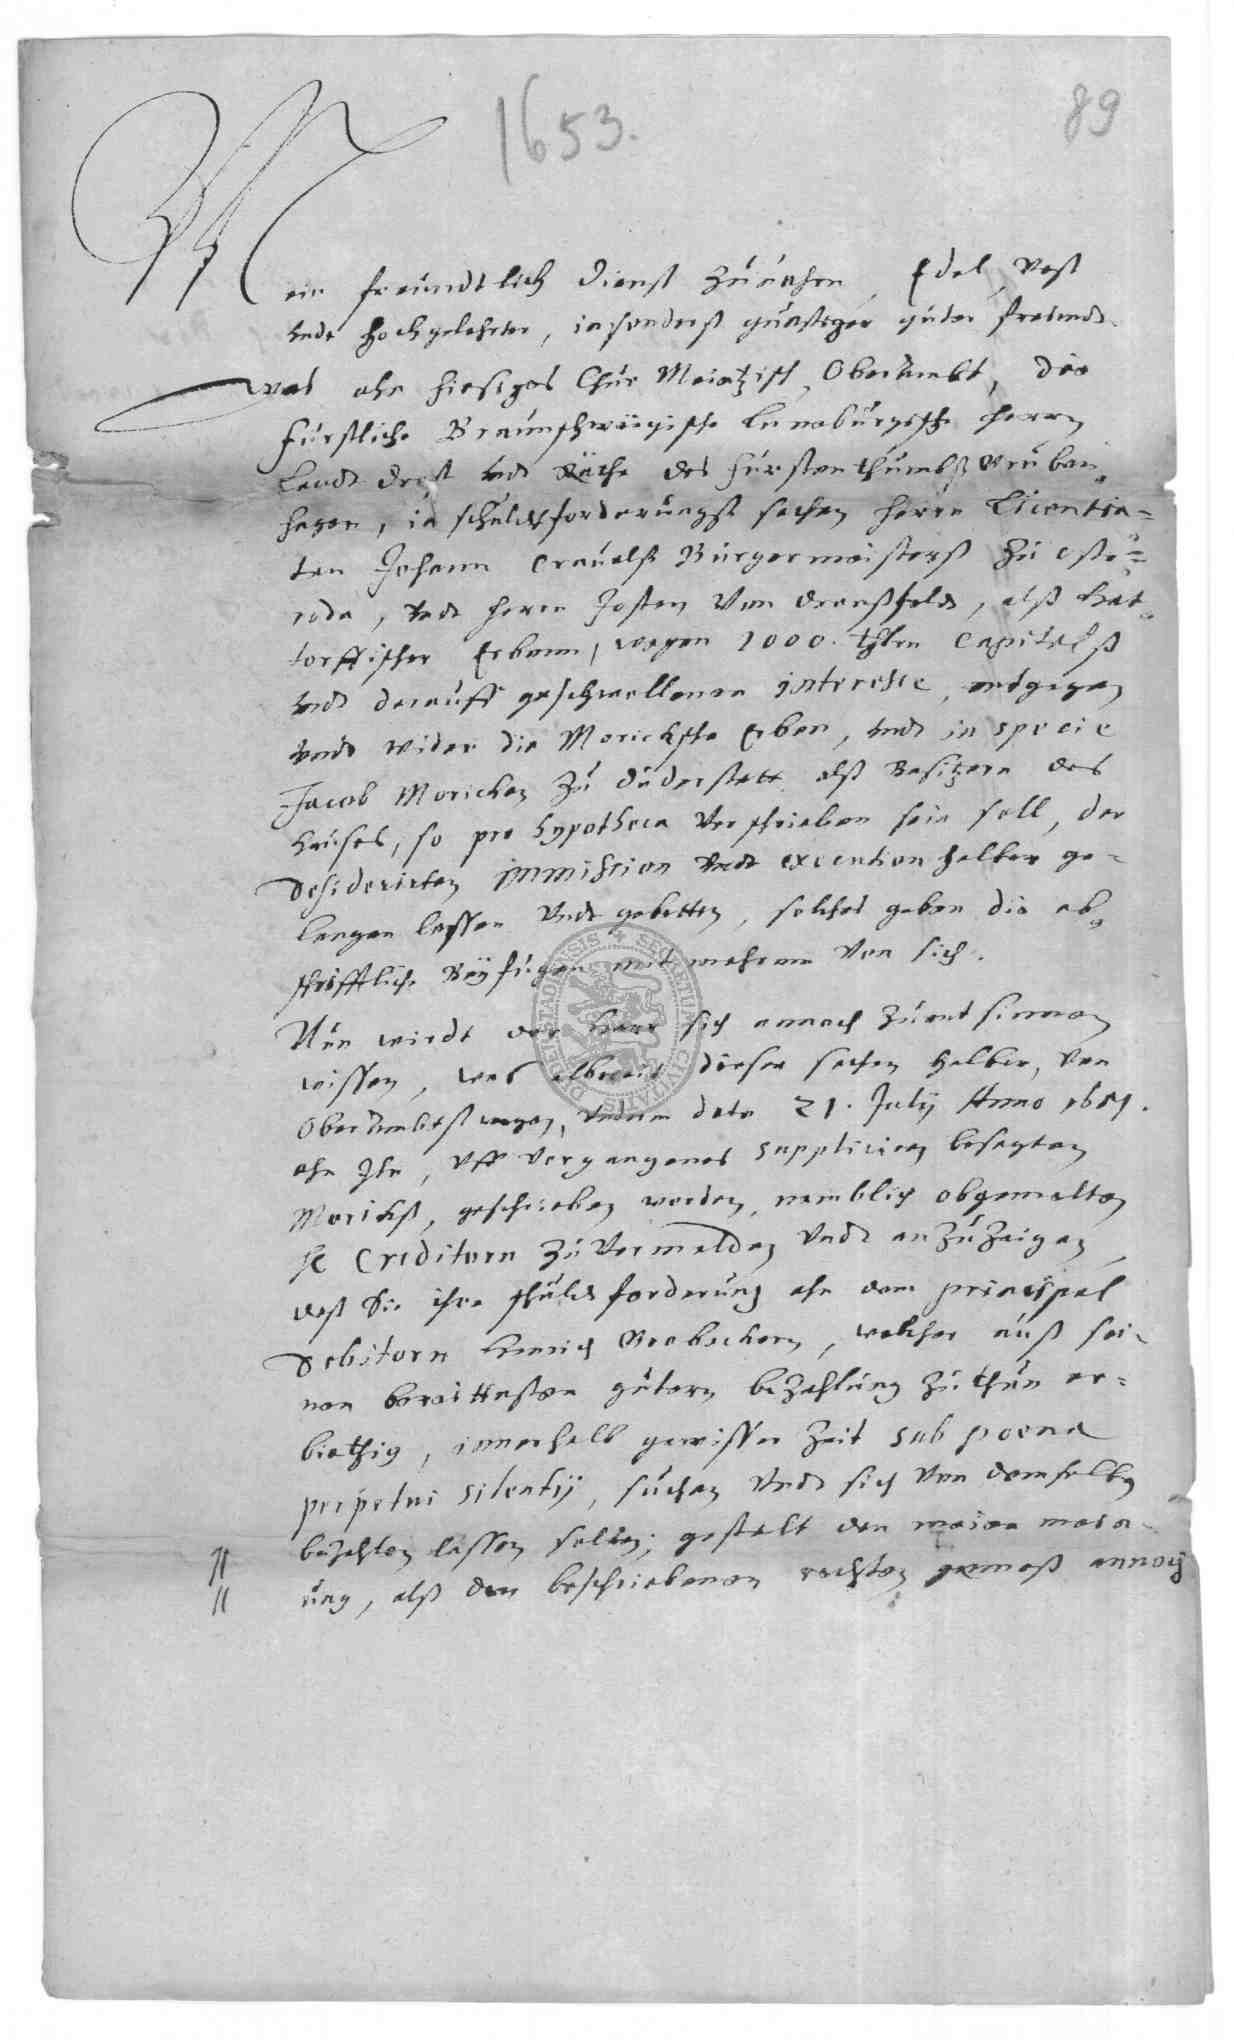 1653.
89
Mein freündtlich Dienst zuuohrn, Edel, Vest
vndt Hochgelehrter, insonderß günstiger guter freündt.
was ahn hiesiges Chur Meintzisch Oberambt, die
Fürstliche Braunschweigische Lunaburgische Herrn
Landt Drost vndt Räthe des Fürstenthumbß Gruben
hagen, in schuldtforderungß sachen Herrn Licentia-
ten Johann Crauelß Bürgermeisterß zu Oste-
roda, vndt Herrn Josten von Dransfeldt, alß Hat-
torffischer Erben, wegen 1000. thlrn Capitalß
vndt darauff geschwollenen interesse, entgegen
vndt wider die Morickste Erben, vndt in specie
Jacob Moricken zu Duderstatt alß Besitzern des
Hauses, so pro hypotheca verschrieben sein soll, der
desiderirten immission vndt execution halber ge-
langen lassen vndt gebetten, solches geben die ab
schrifftliche Beyfügen mit mehrem von sich.
Nun wirdt der Herr sich annoch zuentsinnen
wissen, was albereit dieser sachen halber, von
Oberambtß wegen, vnterm dato 21. July Anno 1651.
ahn Ihn, vff vorgangenes suppliciren besagten
Morickß, geschrieben worden, nemblich obgemelten
H Creditorn zu vermelden vndt anzuzeigen,
daß Sie ihre schuldtforderung ahn dem principal
Debitorn Henrich Brobeckern, welcher auß sei-
nen bereittesten gütern bezahlung zu thun er-
biethig, innerhalb gewisser Zeit sub poena
perpetui silentij, suchen vndt sich von demselben
bezahlen lassen solten; gestalt den meine mein-
ung, alß den beschriebenen rechten gemeß annoch